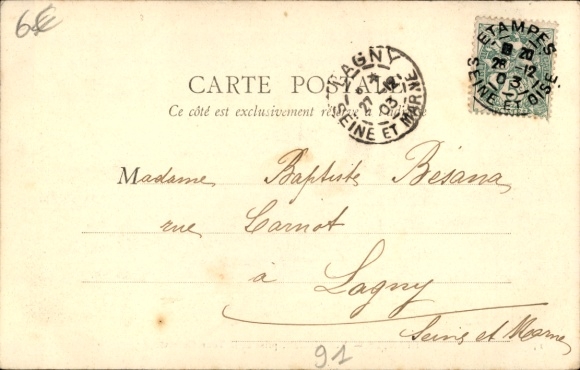 6€
ETAMPES
1E 20
26 -12
03
SEINE ET OISE
LAGNY
27 -12
03
SEINE ET MARNE
CARTE POSTALE
Ce côté est exclusivement réservé à
Madame Baptiste Bésana
rue Carnot
à Lagny
Seine et Marne
91